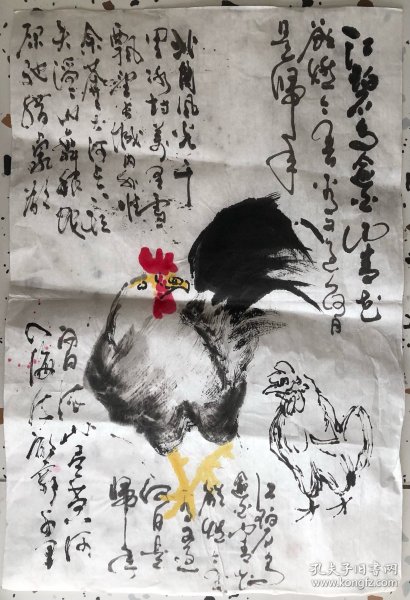 江碧鸟逾白山青花
欲燃今春看又过何日
是归年
北国风光千
里冰封万里雪
飘望长城内外惟
余莽莽大河上下顿
失滔滔山舞银蛇
原驰蜡象欲
白日依山尽黄河
入海流欲穷千里
江碧鸟
逾白山青花
欲燃今春
看又过
何日是
归年
孔夫子旧书网
www.kongfz.com